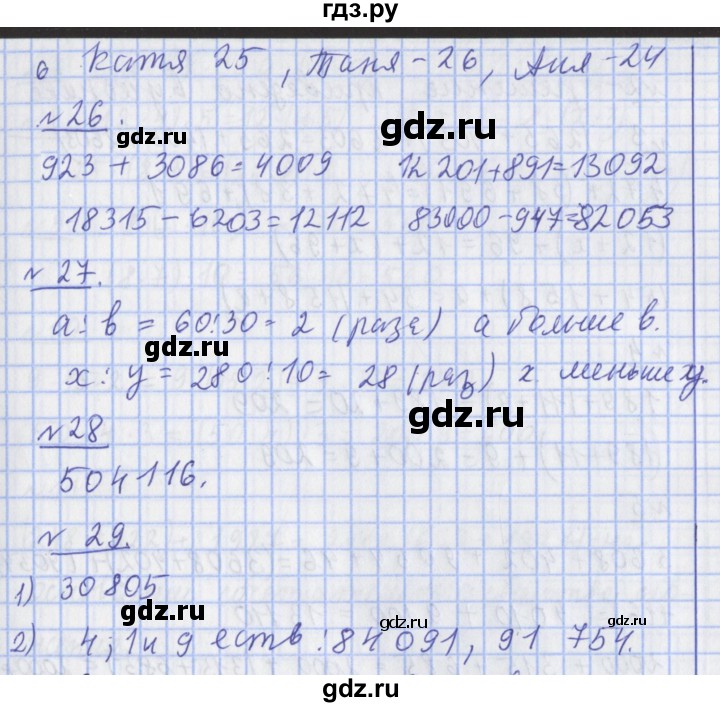 гдз.ру
6 Катя 25, Таня - 26, Аня - 24
№ 26.
gdz.ru
923 + 3086 = 4009 12 201 + 891 = 13092
gdz.ru
18315 - 6203 = 12112 83000 - 947 = 82053
№ 27.
a : b = 60 : 30 = 2 (раза) a больше b.
gdz.ru
x : y = 280 : 10 = 28 (раз) x меньше y.
gdz.ru
№ 28
504 116.
gdz.ru
№ 29.
1) 30805
gdz.ru
gdz.ru
2) 4; 1 и 9 еств : 84 091, 91 754.
gdz.ru